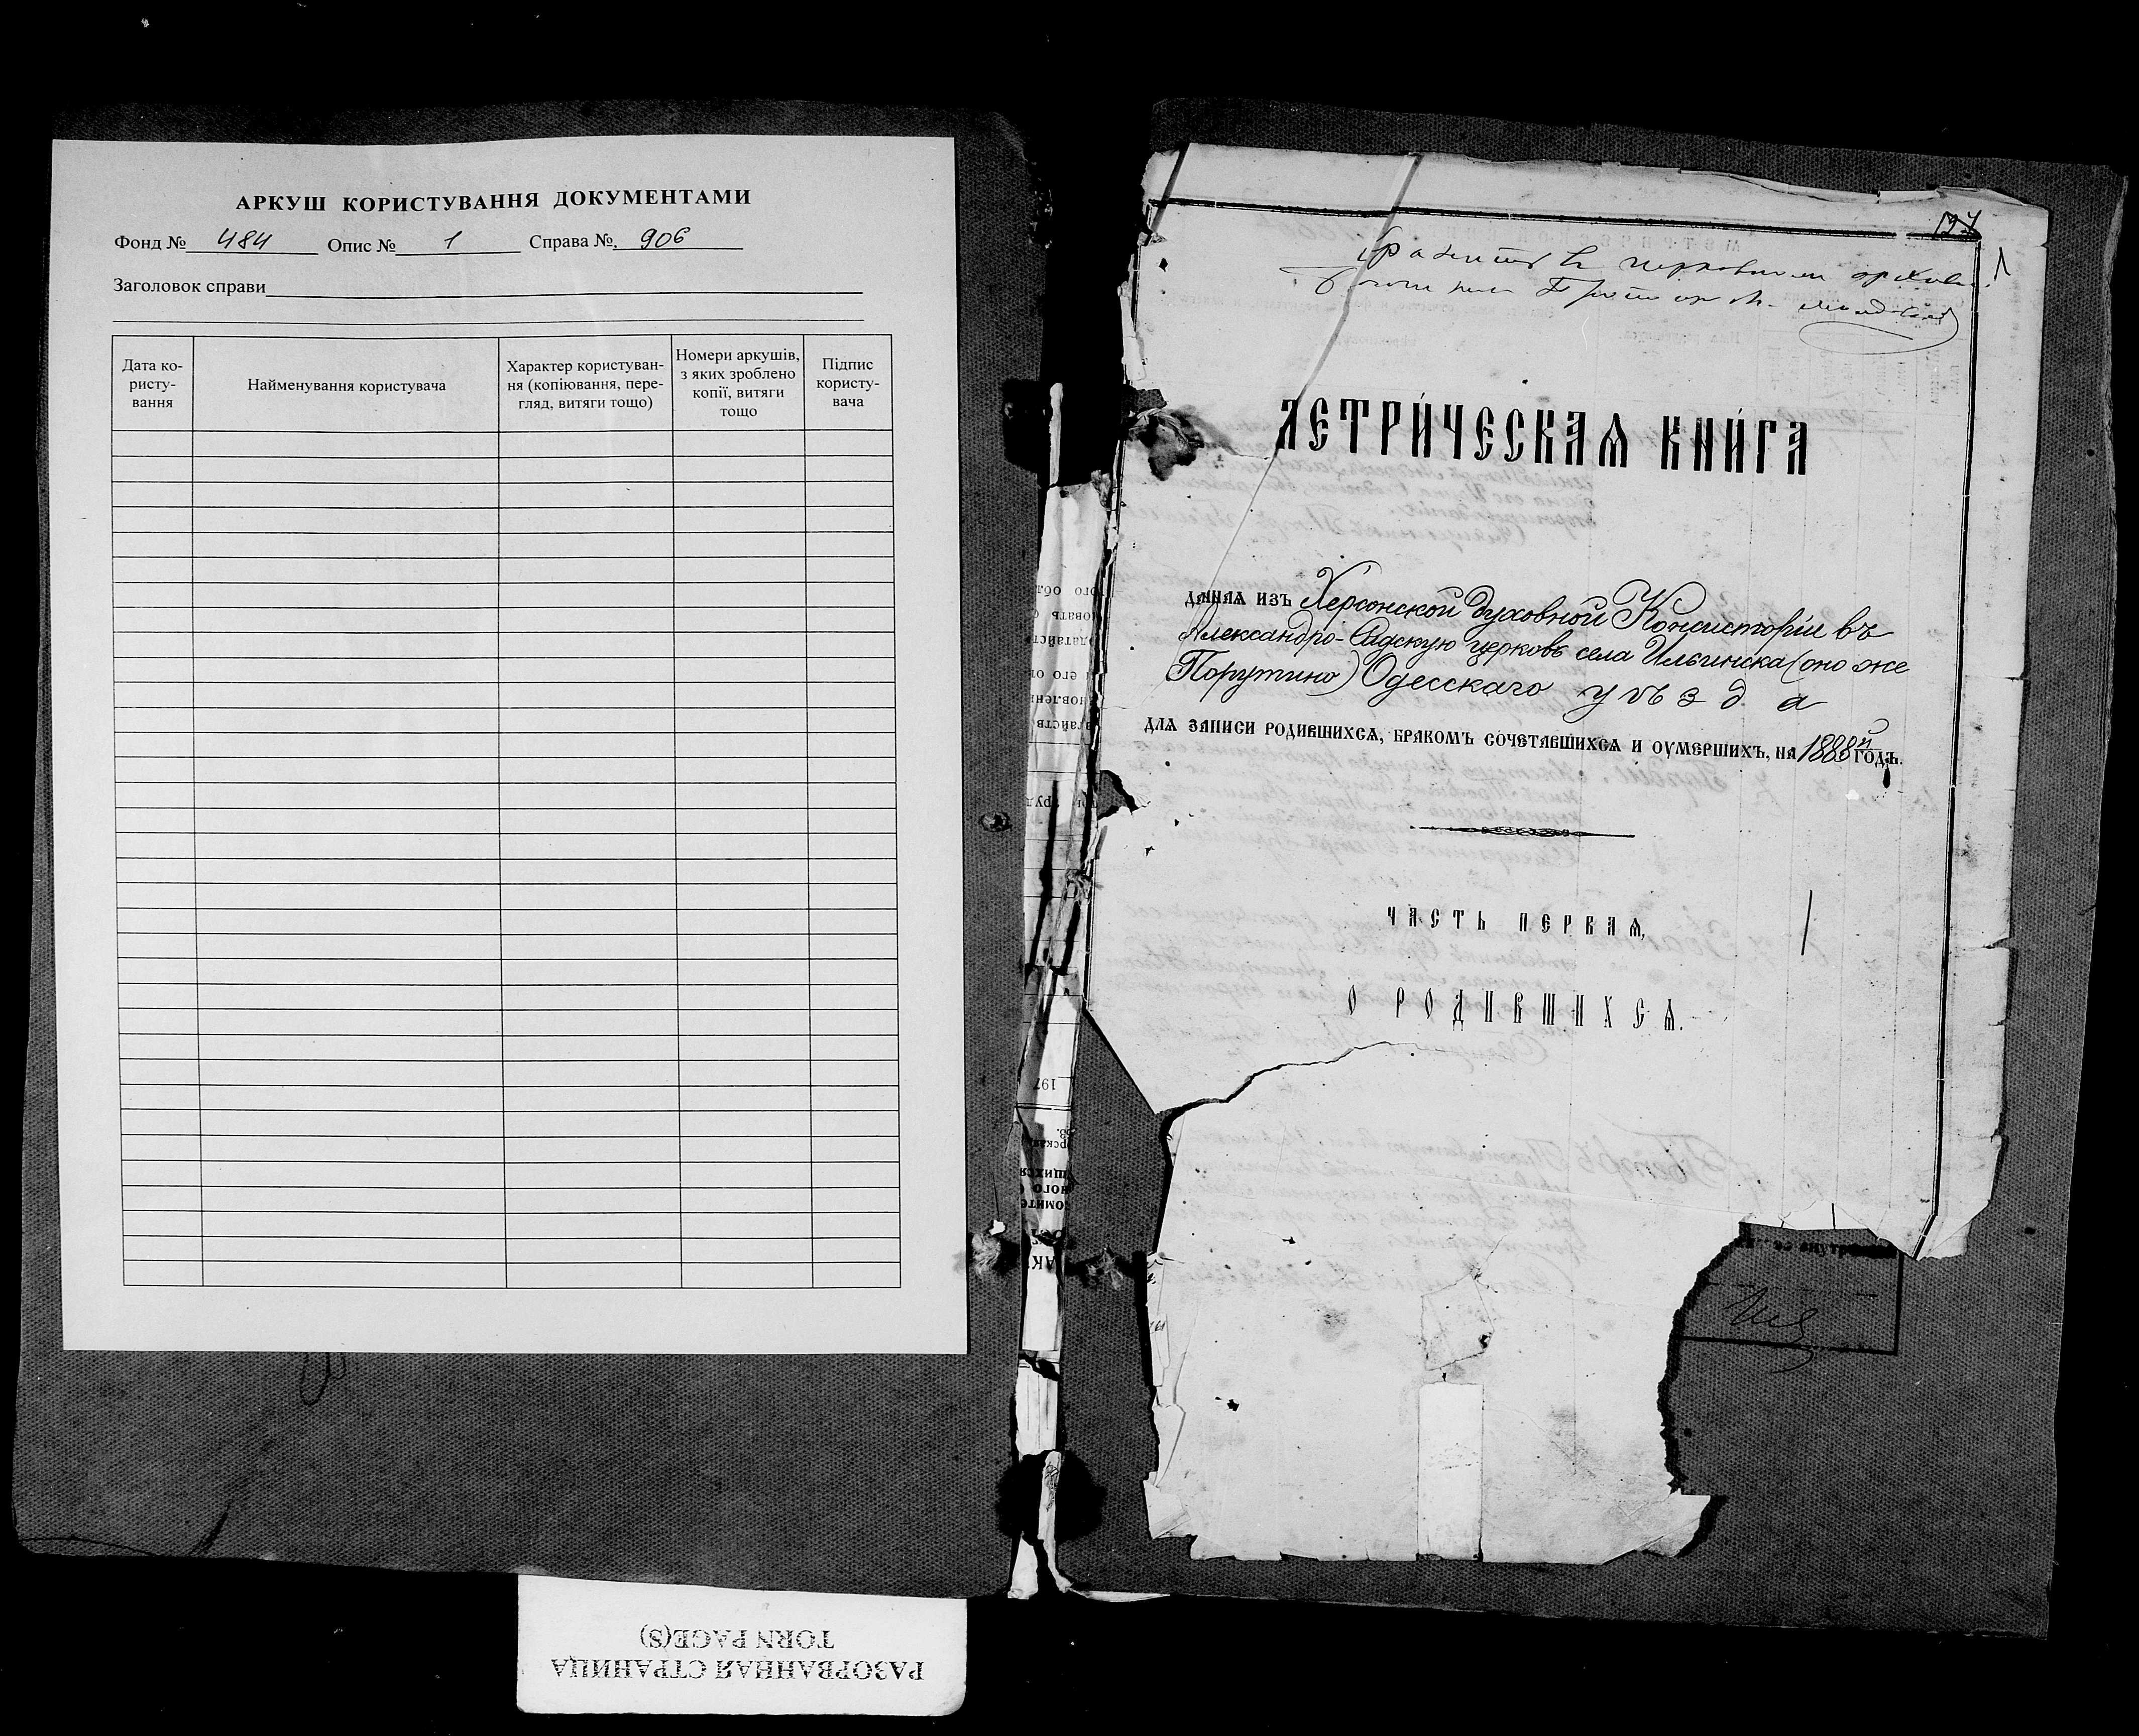 АРКУШ КОРИСТУВАННЯ ДОКУМЕНТАМИ
Фонд № 484 Опис № 1 Справа № 906
Заголовок справи
Дата ко-
ристу-
вання
Найменування користувача
Характер користуван-
ня (копіювання, пере-
гляд, витяги тощо)
Номери аркушів,
з яких зроблено
копії, витяги
тощо
Підпис
користу-
вача
197
РАЗОРВАННАЯ СТРАНИЦА
TORN PAGE(S)
1
МЕТРИ́ЧЕСКАѦ КНИ́ГА
дана изъ Херсонской духовной Консисторіи въ
Александро-Садскую церковь села Ильинска (оно же
Порутино) Одесскаго уѣзда
длѧ записи родившихсѧ, бракомъ сочетавшихсѧ и оумершихъ, на 1888й годъ.
ЧАСТЬ ПЕРВАѦ,
О РОДИВШИХСѦ.